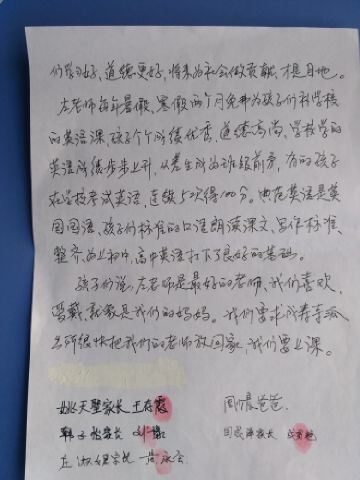 们学习好，道德更好，将来为社会做贡献，才是目地。
左老师每年暑假，寒假两个月免费为孩子们补学校
的英语课，孩子个个成绩优秀，道德高尚，学校学的
英语成绩步步上升，从差生成为班级前旁，有的孩子
在学校考试英语，连续5次得100分。典范英语是英
国国语，孩子们标准的口语朗读课文，写作标准、
整齐，为上初中，高中英语打下了良好的基础。
孩子们说，左老师是最好的老师，我们喜欢，
爱戴，就象是我们的妈妈。我们要求
所很快把我们的老师放回家，我们要上课。
姚天 家长 王存霞
周 爸爸
家长 刘
家长
左淑 家长